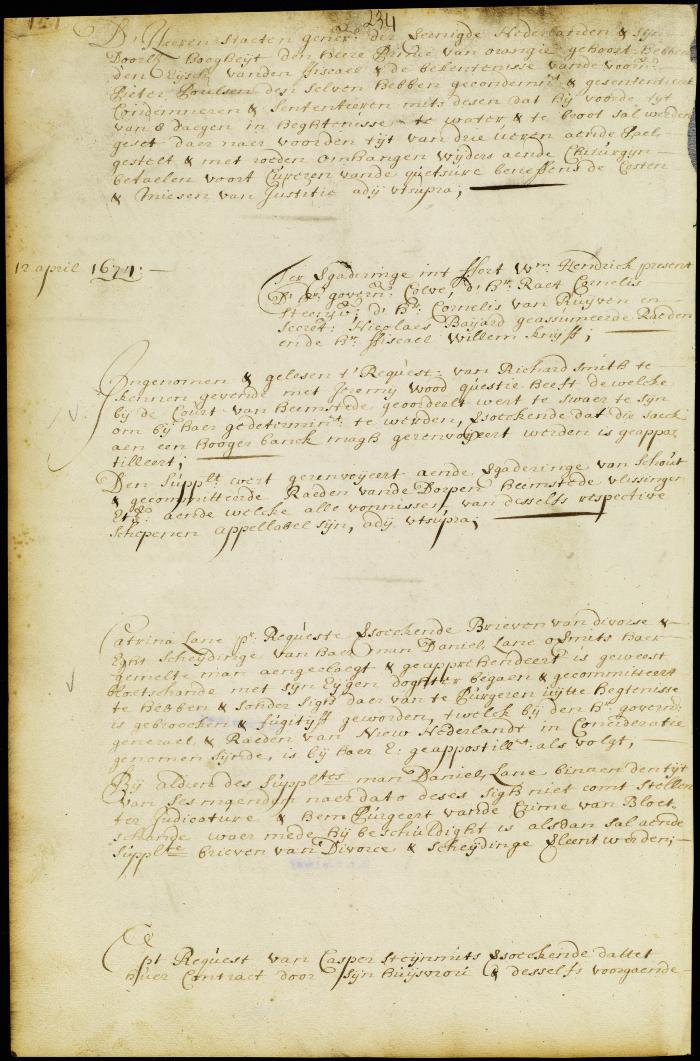 234
De Heeren Staeten gener: der Vereenigde Nederlanden & Syn
Doorl: Hoogheyt den Heere Prince van orangie gehoort hebben
den Eysch vanden fiscael & de bekentenisse vande voorn:
Pieter Poulsen desselven hebben gecondemnt & gesententieert
Condemneren & Sententieren mits desen dat hij voorde tijt
van 8 daegen in heghtenisse te water & te broot sal werden
geset daer naer voorden tijt van drie uren aende Pael
gestelt & met roeden omhangen wijders aende Chirurgyn
betaelen voort Cureren vande quetsure beneffens de Costen
& Miesen van Justitie adij utsupra;
12 april 1674:
Ter Vgaderinge int ffort Wm Hendrick present
D' hr govern: Colve, d' hr Raet Cornelis
Steenw:; d' hr Cornelis van Ruyven en
Secret: Nicolaes Bayard geassumeerde Raeden
ende hr ffiscael Willem Knijff;
Ingenomen & gelesen t' Request van Richard Smith te
kennen gevende met Jeremy Wood questie heeft dewelcke
bij de Court van Heemstede geoordeelt wert te swaer te syn
om bij haer gedetermint te werden, versoeckende dat die saeck
aen een hooger banck magh gerenvoyeert werden is geappos
tilleert;
Den Supplt wert gerenvoijeert aende Vgaderinge van Schout
& gecommitteerde Raeden vande Dorpen Heemstede vlissingen
Etca: aende welcke alle vonnissen van desselfs respective
Schepenen appellabel sijn, adij utsupra;
Catrina Lane pr Requeste Versoeckende Brieven van divorse &
Eght Scheydinge van haer man Daniel Lane omits haer
gemelte man aengeclaegt & geapprehendeert is geweest
bloetschande met syn Eygen doghter begaen & gecommitteert
te hebben & sonder sigh daer van te Purgeren uytte heghtenisse
is gebroocken & fugityff geworden, twelck bij den hr govern:
generael & Raeden van Nieu Nederlandt in Concideratie
genomen synde, is bij haer E: geappostillt als volgt,
By aldien des Suppltes man Daniel Lane binnen den tijt
van Ses maenden naer dato deses sigh niet comt Stellen
ter Judicature & hem Purgeert vande Crime van Bloet
schande waer mede hij beschuldight is alsdan sal aende
Supplte brieven van Divorce & Scheydinge Vleent werden;
Opt Request van Casper Steynmits Versoeckende dattet
huer Contract door syn huysvrou & desselfs voorgaende